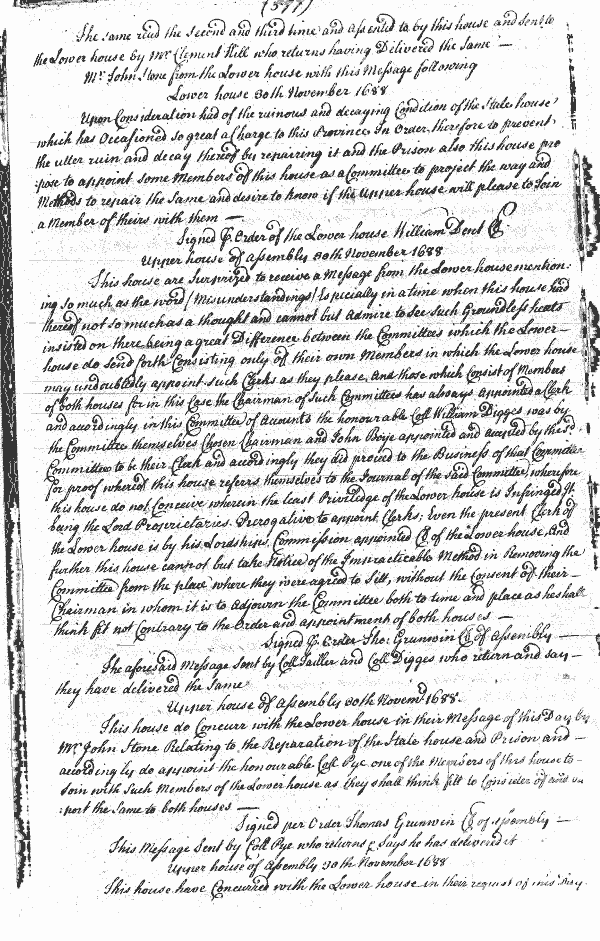 (577)
The same read the Second and third time and assented to by this house and sent to
the Lower house by Mr. Clement Hill who returns having Delivered the same —
Mr. John Stone from the Lower house with this Message following
Lower house 30th November 1688
Upon Consideration had of the ruinous and decaying Condition of the State house
which has Occasioned so great a Charge to this Province In Order therefore to prevent
the utter ruin and decay thereof by repairing it and the Prison also this house pro
pose to appoint some Members of this house as a Committee to project the way and
Methods to repair the Same and desire to know if the Upper house will please to Join
a Member of theirs with them —
Signed P. Order of the Lower house William Dent Cl.
Upper house of assembly 30th November 1688
This house are Surprized to receive a Message from the Lower house mention:
ing So much as the word (Misunderstandings) Especially in a time when this house had
thereof not so much as a thought and cannot but Admire to see Such Groundless heats
insisted on there being a great Difference between the Committees which the Lower
house do Send forth Consisting only of their own Members in which the Lower house
may undoubtedly appoint such Clerks as they please, And those which Consist of Members
of both houses for in this Case the Chairman of Such Committees has always appointed a Clerk
and accordingly in this Committee of Accounts the honourable Coll William Digges was by
the Committee themselves Chosen Chairman and John appointed and accepted by the Sd.
Committee to be their Clerk and accordingly they did proceed to the Business of that Committee
for proof whereof this house referrs themselves to the Journal of the Said Committee, wherefore
this house do not Conceive wherein the least Priviledge of the Lower house is Infringed It
being the Lord Proprietaries Prerogative to appoint Clerks, Even the present Clerk of
the Lower house is by his Lordships Commission appointed Cl. of the Lower house, And
further this house cannot but take notice of the Impracticable Method in Removing the
Committee from the place where they were agreed to Sitt, without the Consent of their
Chairman in whom it is to Adjourn the Committee both to time and place as he shall
think fit not Contrary to the Order and appointment of both houses —
Signed P. Order Tho: Grunwin Cl. of Assembly —
The aforesaid Message sent by Coll Tailler and Coll Digges who return and say
they have delivered the Same
Upper house of Assembly 30th Novemr. 1688.
This house do Concurr with the Lower house in their Message of this Day by
Mr. John Stone Relating to the Reparation of the State house and Prison and
acordingly do appoint the honourable Coll Pye one of the Members of this house to
Join with Such Members of the Lower house as they shall think fitt to Consider of and re
:port the Same to both houses —
Signed per Order Thomas Grunwin Cl. of Assembly —
This Message Sent by Coll Pye who returns & Says he has delivered it
Upper house of Assembly 30th November 1688
This house have Concurred with the Lower house in their request of this Day